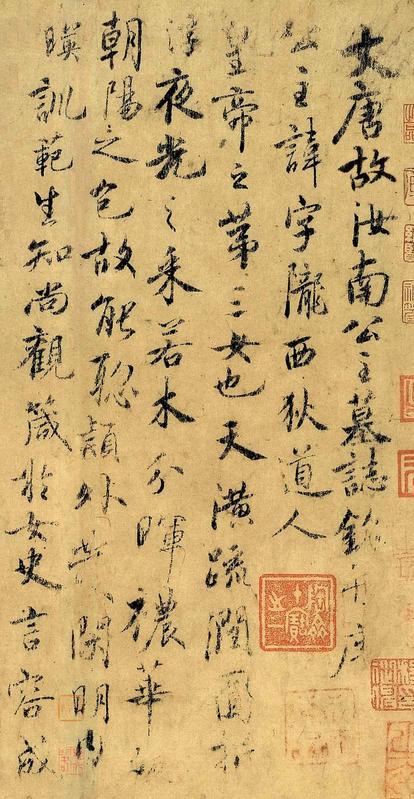 大唐故汝南公主墓誌銘并序
公主諱字隴西狄道人
皇帝之第三女也天潢疏潤圓折
浮夜光之采若木分暉穠華照
朝陽之色故能聰穎外發閑明內
暎訓範生知尚觀箴於女史言容成